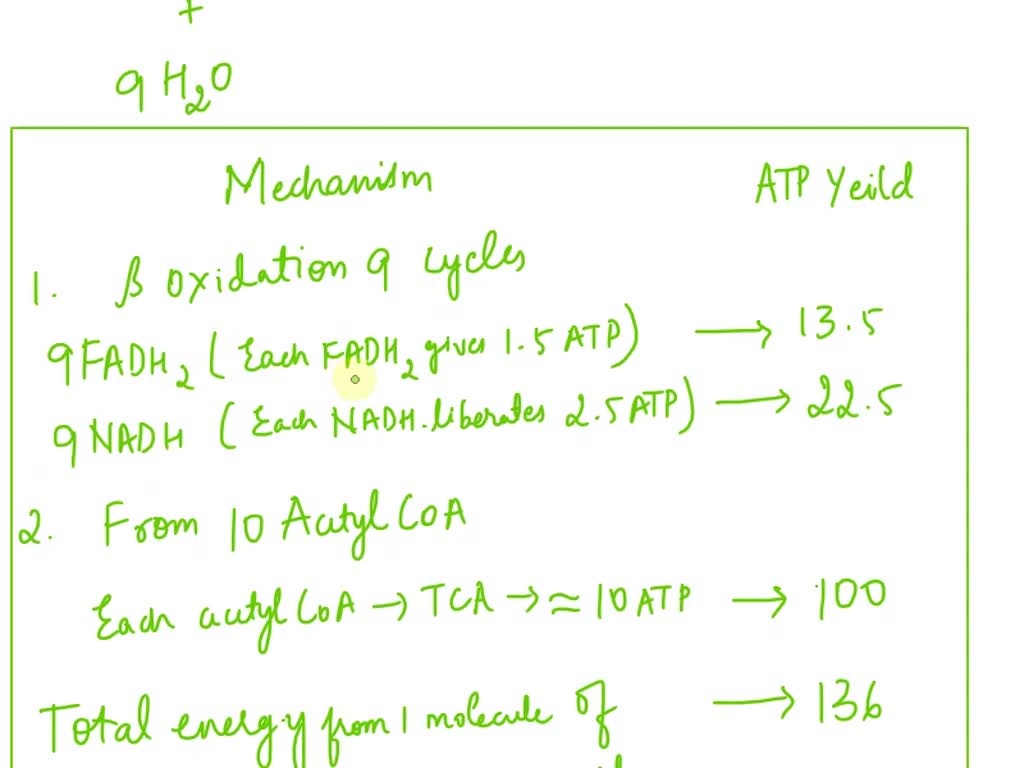 +
9 H₂O
Mechanism ATP Yeild
1. β oxidation 9 cycles
9FADH₂ (Each FADH₂ gives 1.5 ATP) → 13.5
9 NADH (Each NADH liberates 2.5 ATP) → 22.5
2. From 10 Acetyl CoA
Each acetyl CoA → TCA → ≈ 10 ATP → 100
Total energy from 1 molecule of → 136